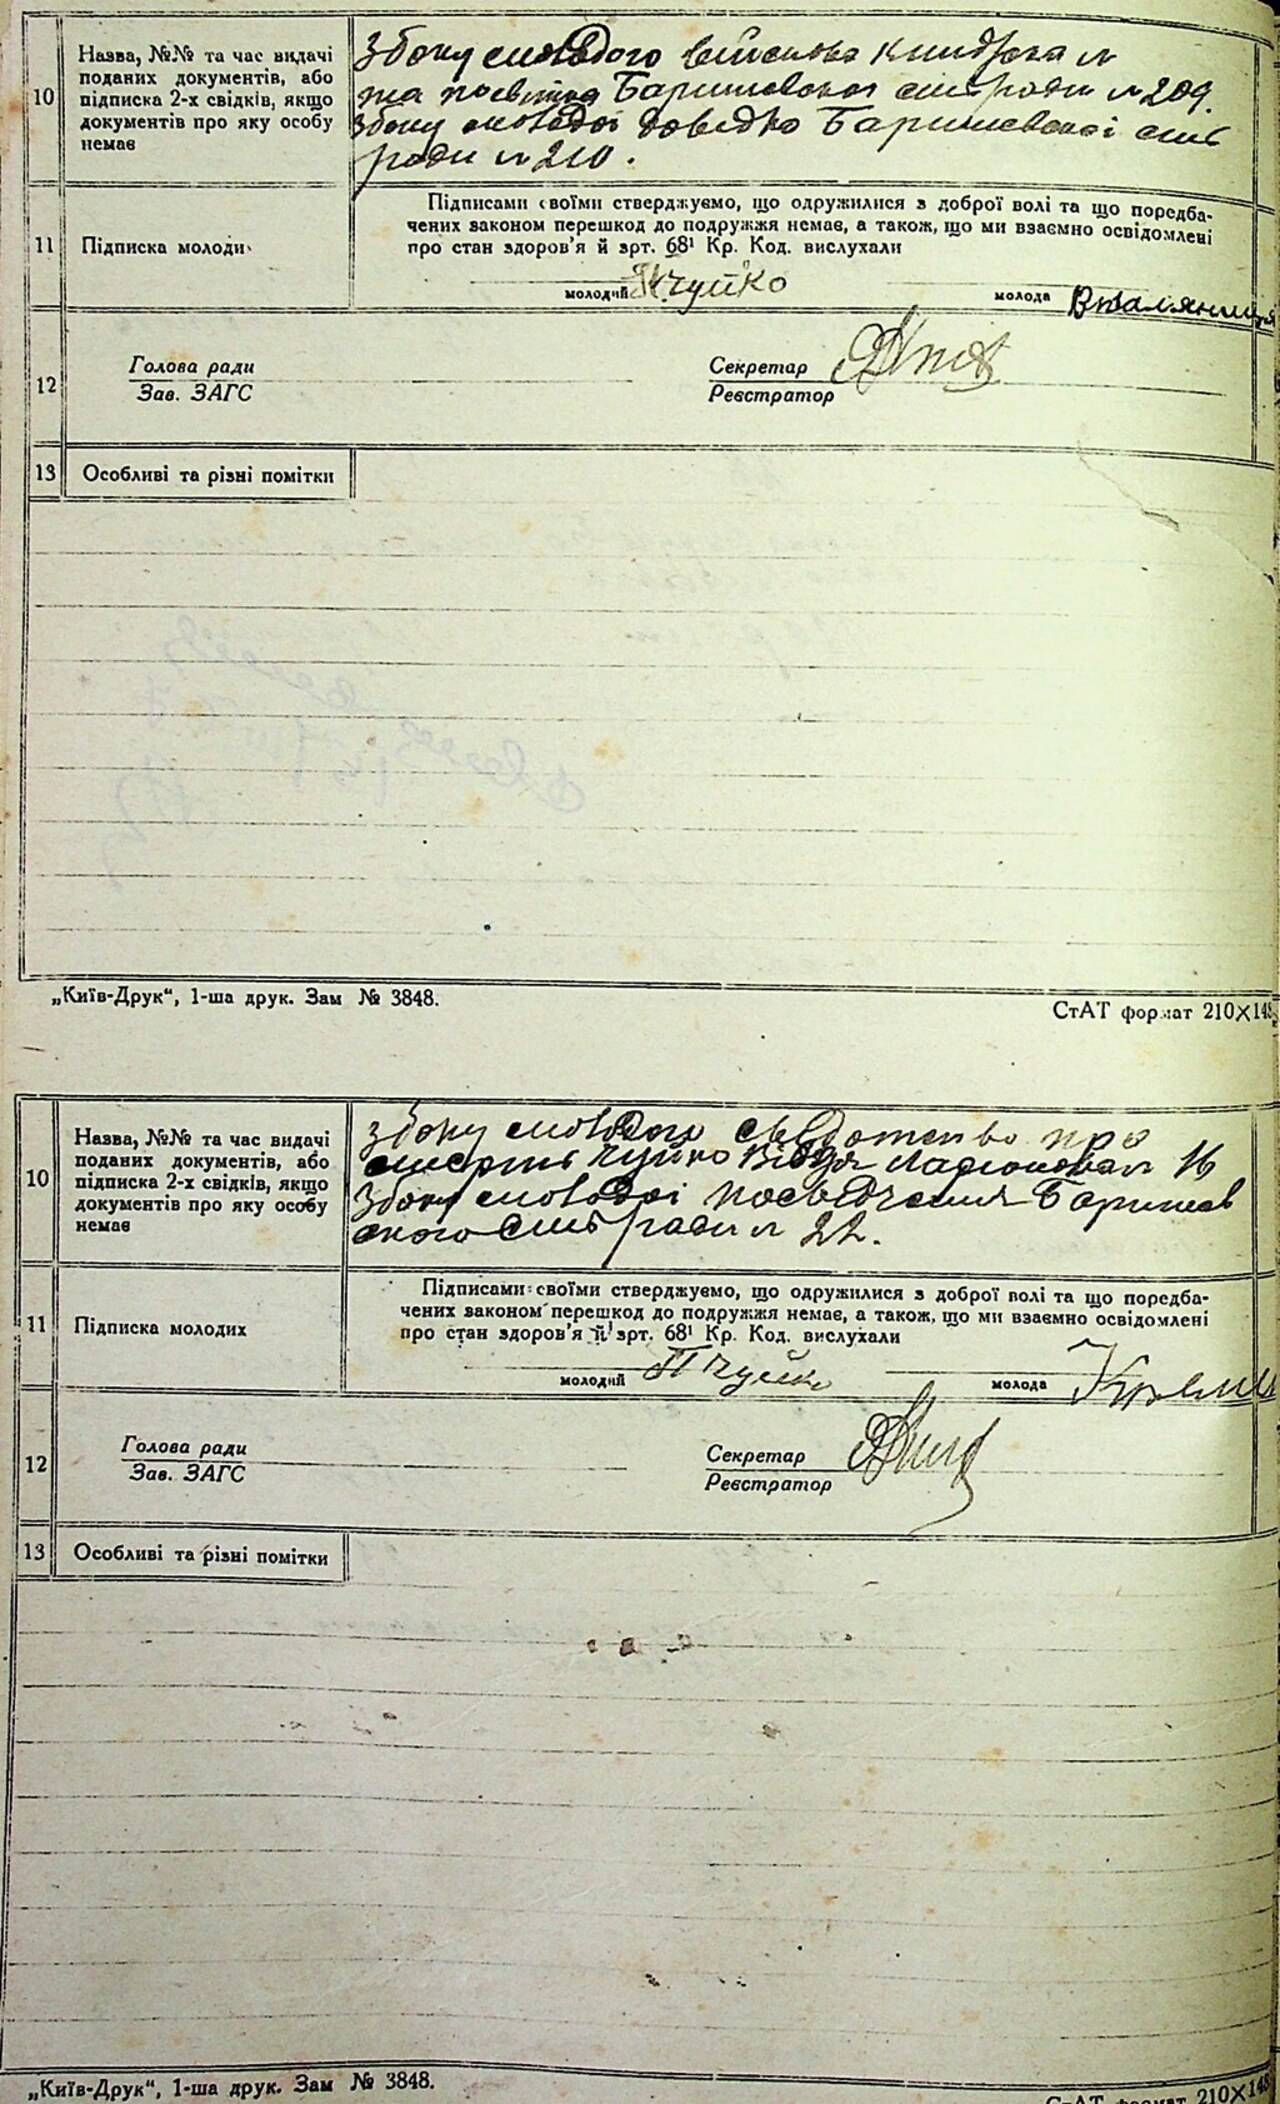 10
Назва, №№ та час видачі
поданих документів, або
підписка 2-х свідків, якщо
документів про яку особу
немає
Збоку молодого військова книжка №
та посвідка Баришевської сільради № 209.
Збоку молодої довідка Баришевської сіль
ради № 210.
11
Підписка молоди
Підписами своїми стверджуємо, що одружилися з доброї волі та що передба-
чених законом перешкод до подружжя немає, а також, що ми взаємно освідомлені
про стан здоров'я й зрт. 68¹ Кр. Код. вислухали
молодий Чуйко
молода
12
Голова ради
Зав. ЗАГС
Секретар
Реєстратор
13
Особливі та різні помітки
„Київ-Друк“, 1-ша друк. Зам № 3848.
СтАТ формат 210×148
10
Назва, №№ та час видачі
поданих документів, або
підписка 2-х свідків, якщо
документів про яку особу
немає
Збоку молодого свідотство про
смерть Чуйко № 16
Збоку молодої посвідчення Баришев
ського сільради № 22.
11
Підписка молодих
Підписами своїми стверджуємо, що одружилися з доброї волі та що передба-
чених законом перешкод до подружжя немає, а також, що ми взаємно освідомлені
про стан здоров'я й зрт. 68¹ Кр. Код. вислухали
молодий П Чуйко
молода
12
Голова ради
Зав. ЗАГС
Секретар
Реєстратор
13
Особливі та різні помітки
„Київ-Друк“, 1-ша друк. Зам № 3848.
СтАТ формат 210×148